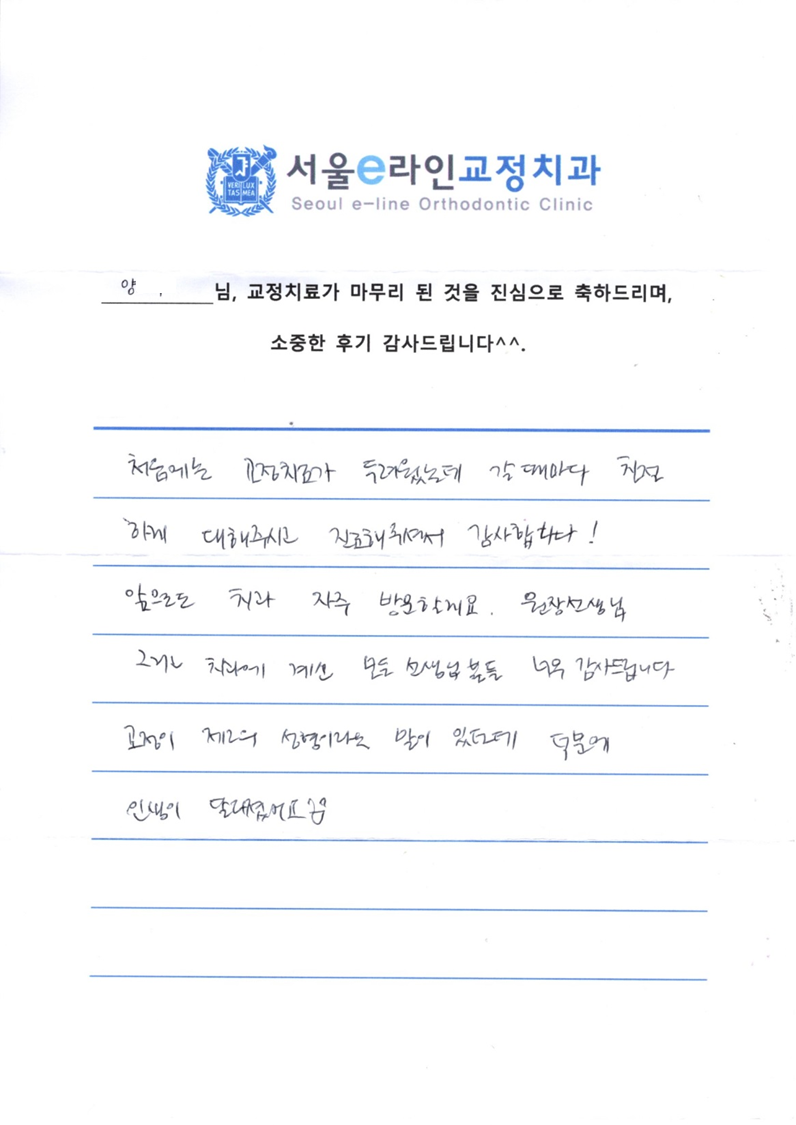 VERI LUX
TAS MEA
서울e라인교정치과
Seoul e-line Orthodontic Clinic
양 님, 교정치료가 마무리 된 것을 진심으로 축하드리며,
소중한 후기 감사드립니다^^.
처음에는 교정치료가 두려웠는데 갈 때마다 친절
하게 대해주시고 진료해주셔서 감사합니다!
앞으로도 치과 자주 방문할게요. 원장선생님
그리고 치과에 계신 모든 선생님분들 너무 감사드립니다
교정이 제2의 성형이라는 말이 있던데 덕분에
인생이 달라졌어요